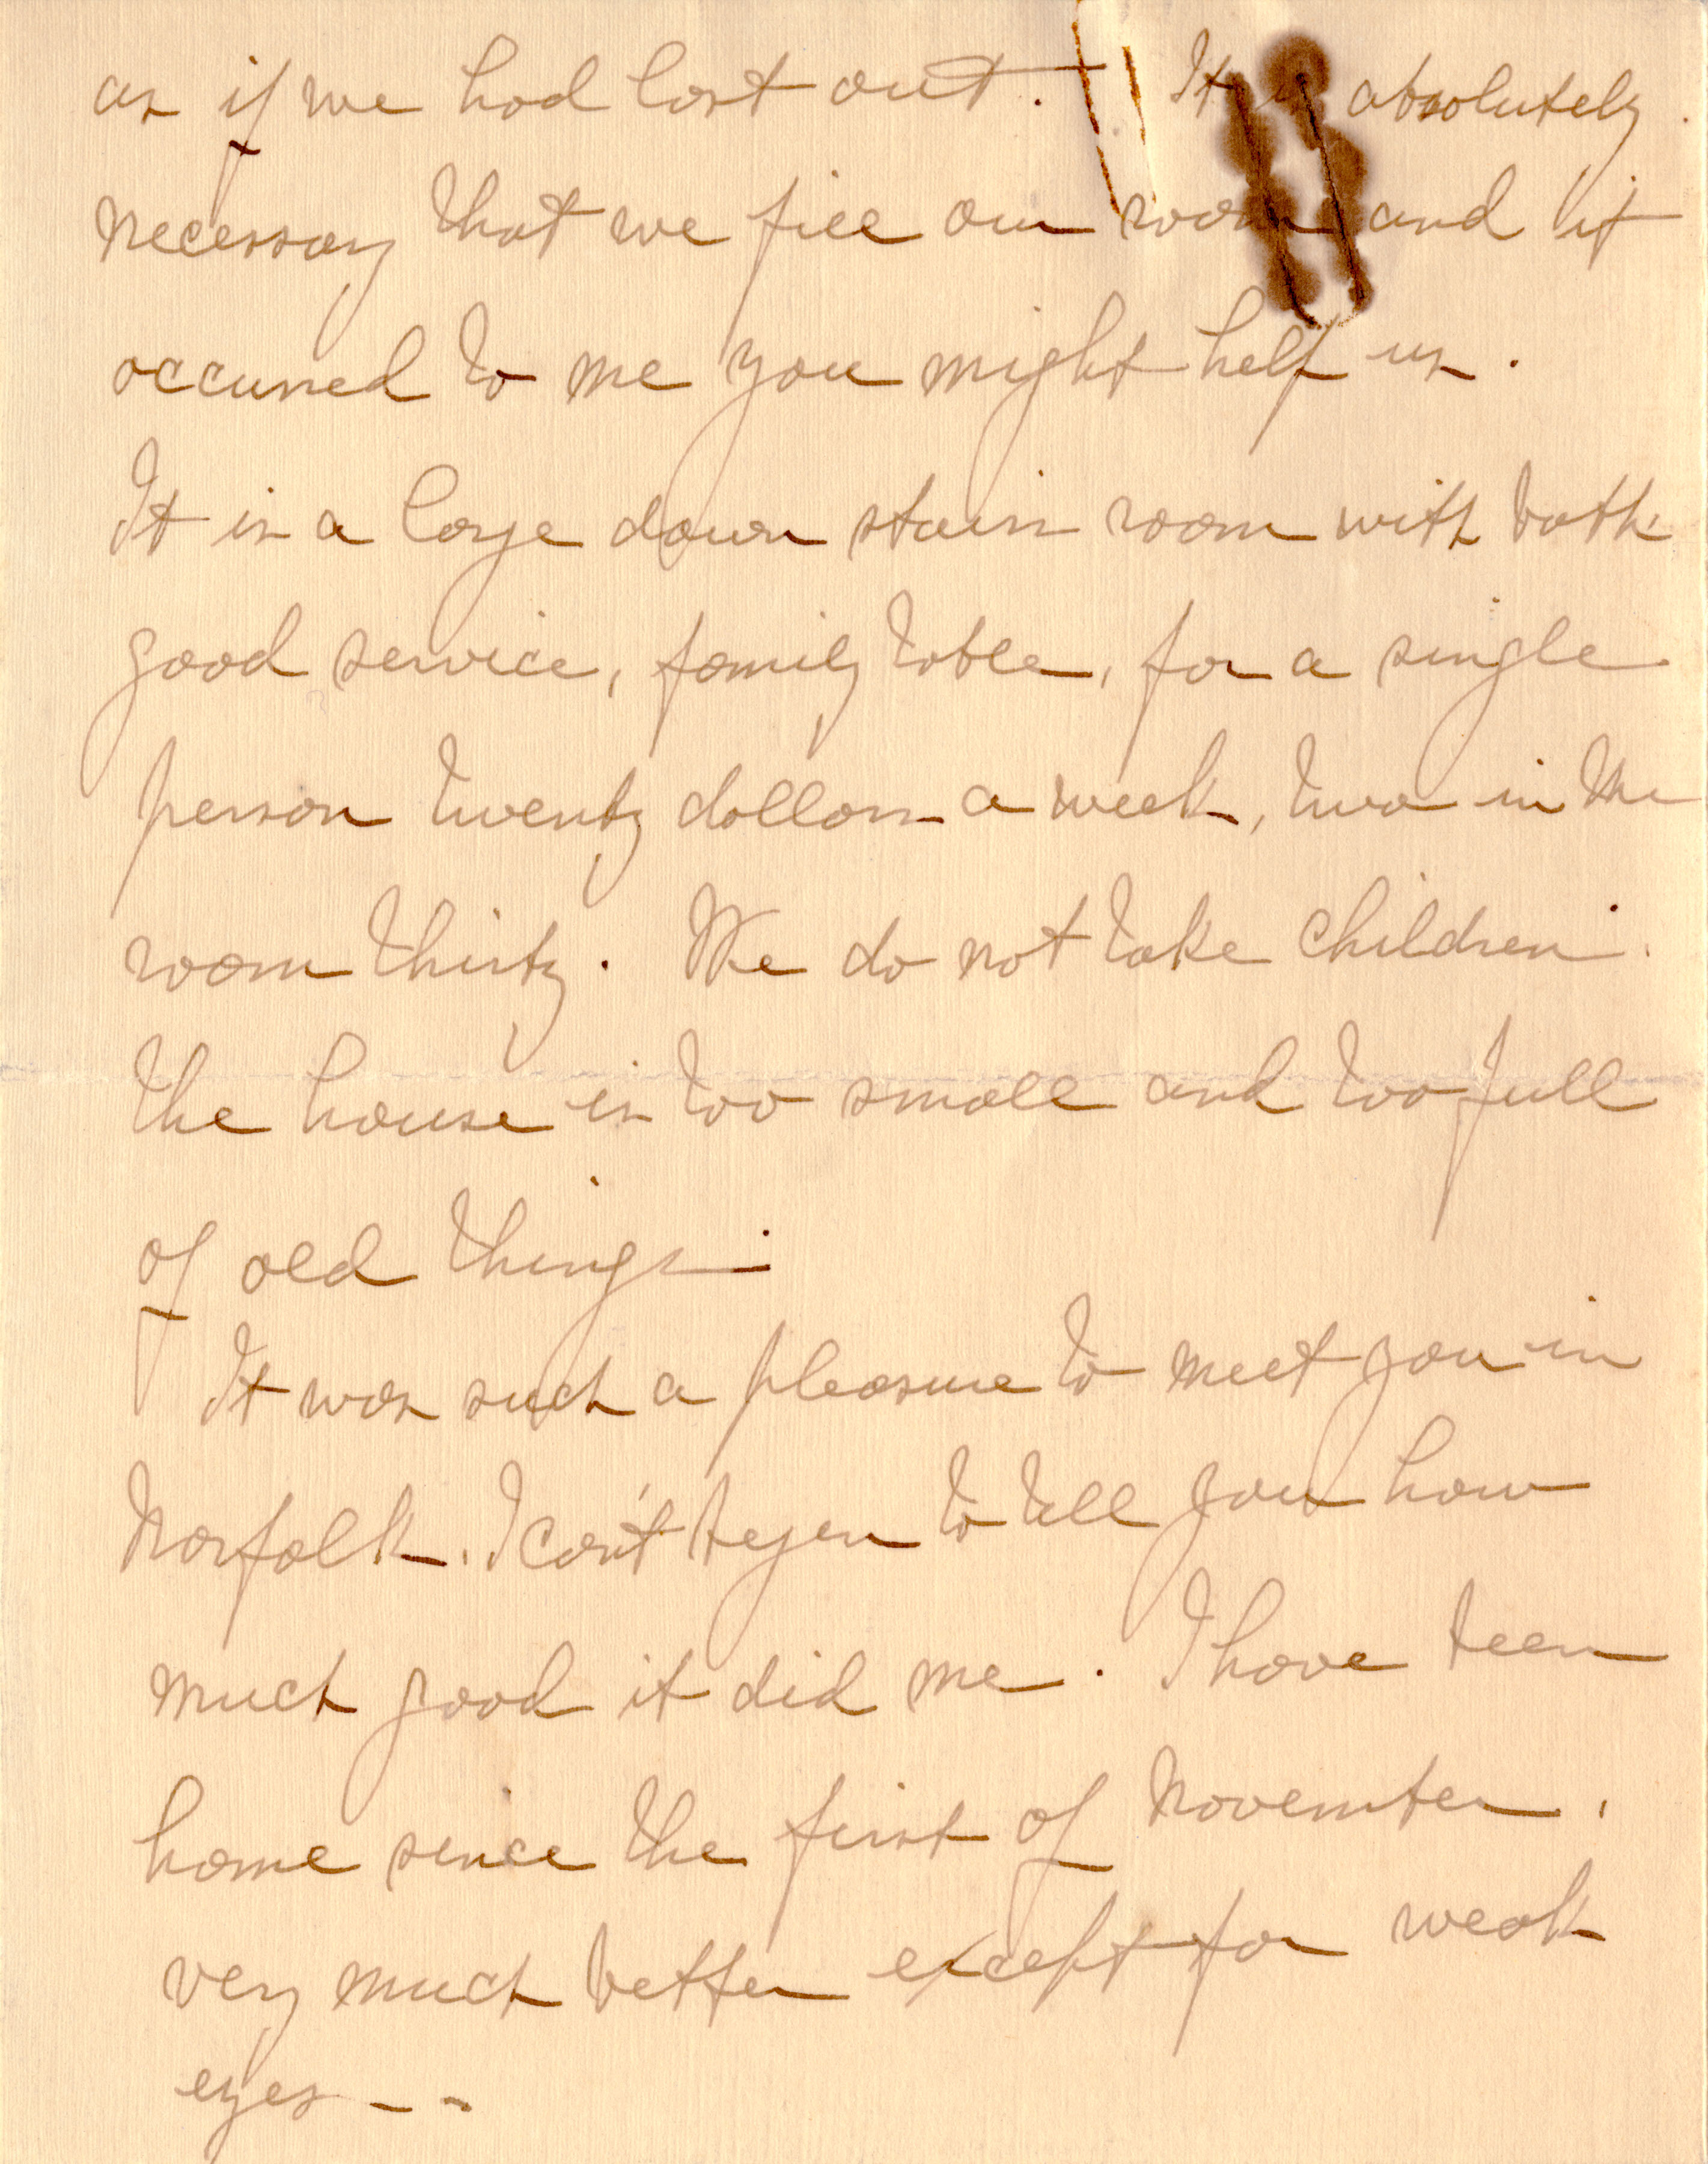 as if we had lost out. It is absolutely
necessary that we fill our room and it
occurred to me you might help us.
It is a large down stairs room with bath
good service, family table, for a single
person twenty dollars a week, two in the
room thirty. We do not take children.
the house is too small and too full
of old things.
It was such a pleasure to meet you in
Norfolk. I can't begin to tell you how
much good it did me. I have been
home since the first of November.
very much better except for weak
eyes - -